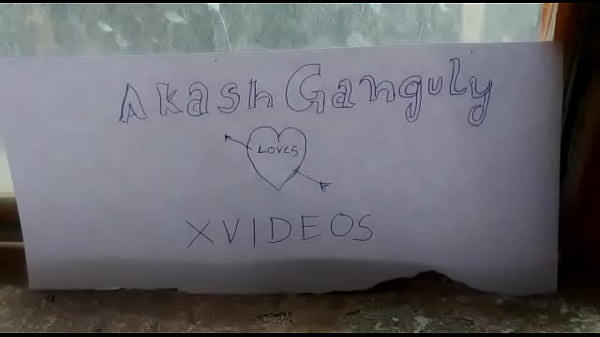 Akash Ganguly
LOVES
XVIDEOS